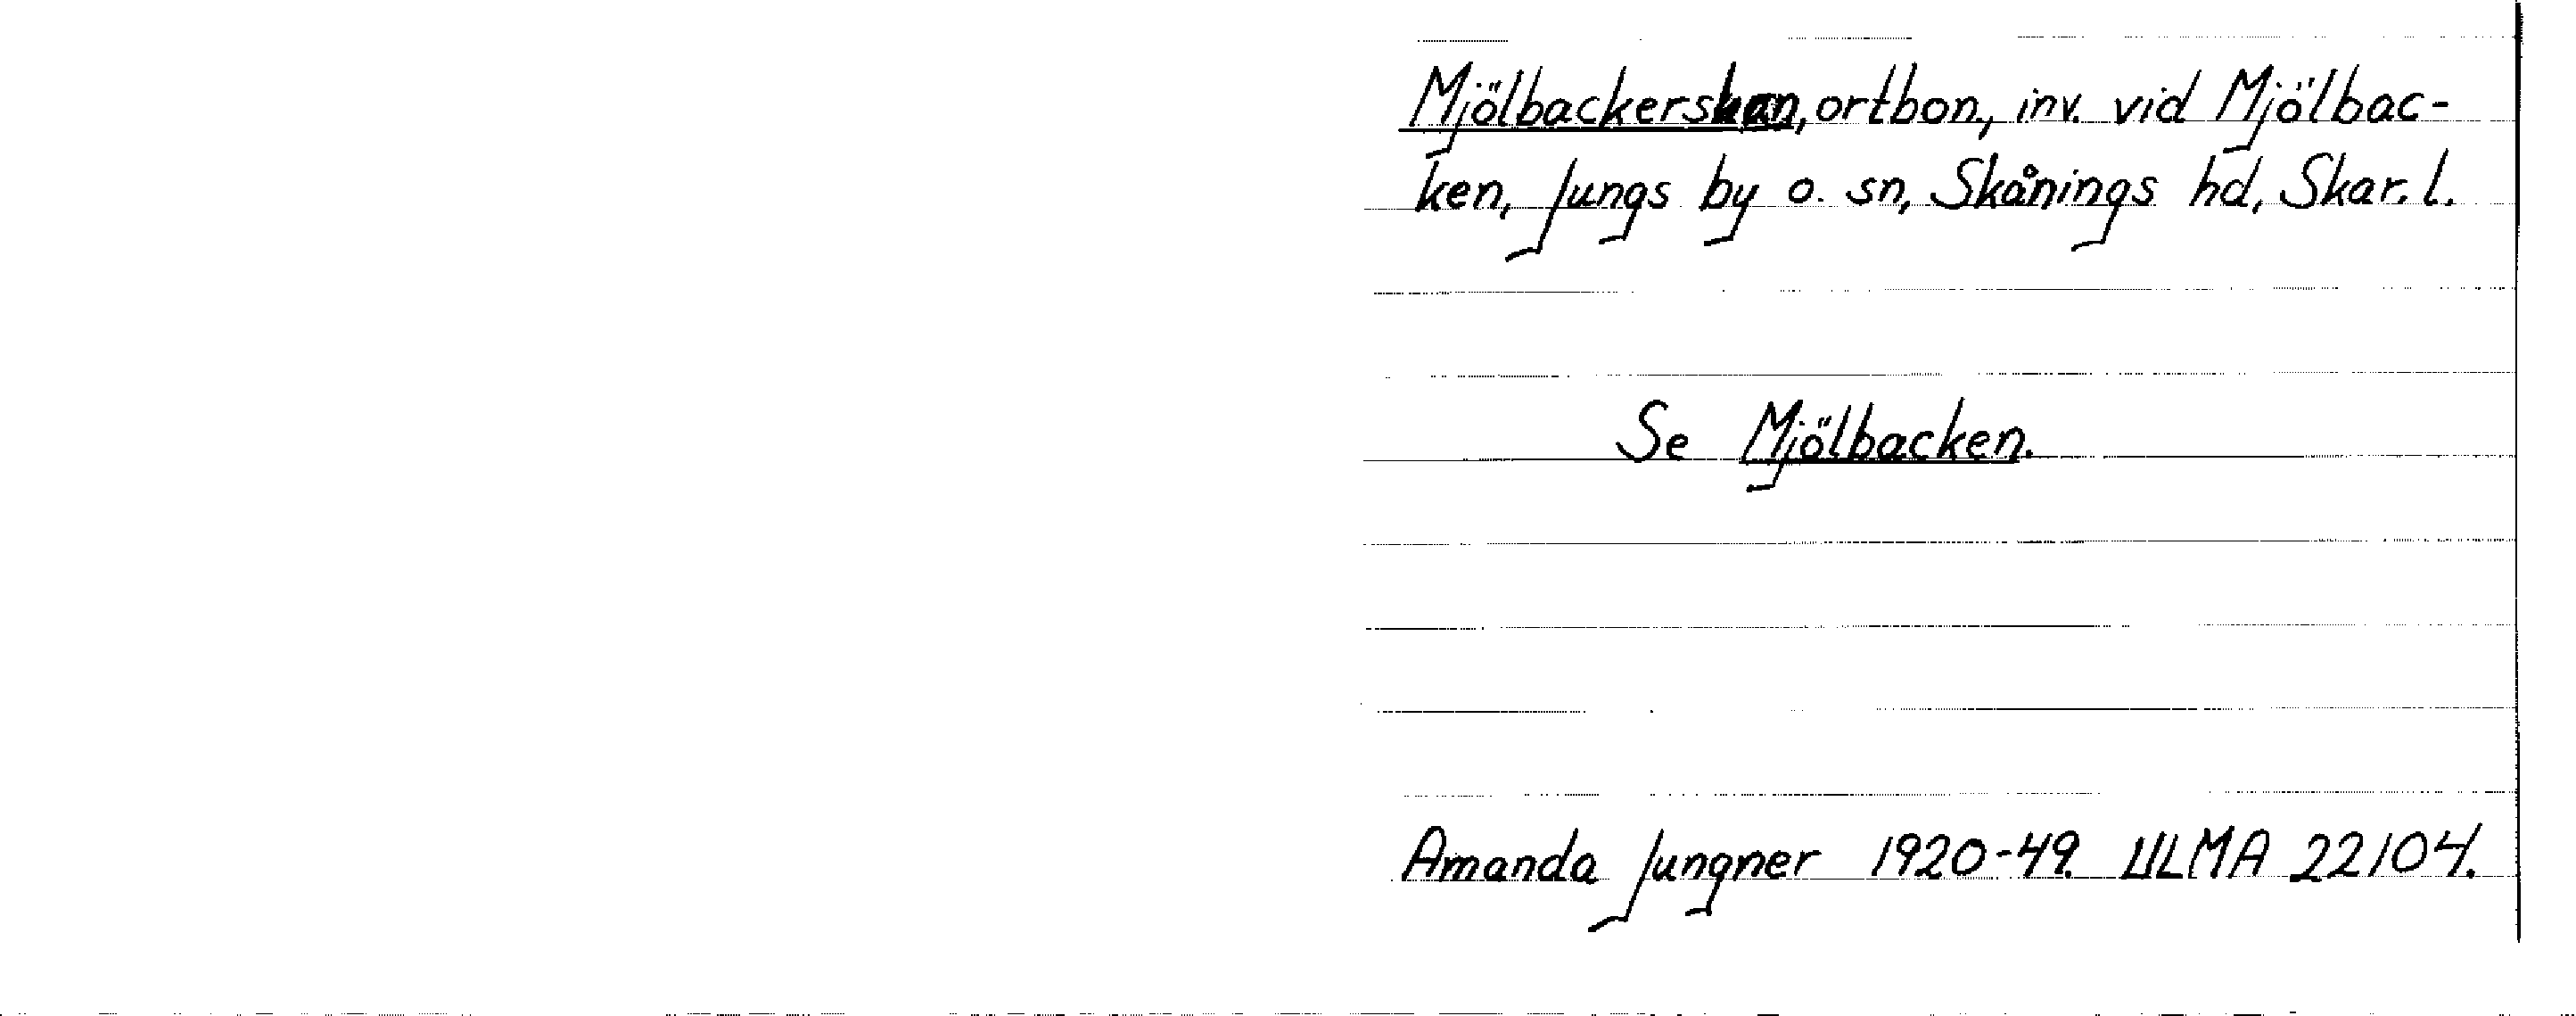 Mjölbackerskan, ortbon., inv. vid Mjölbac-
ken, Jungs by o. sn, Skånings hd, Skar. l.
Se Mjölbacken.
Amanda Jungner 1920-49. ULMA 22104.